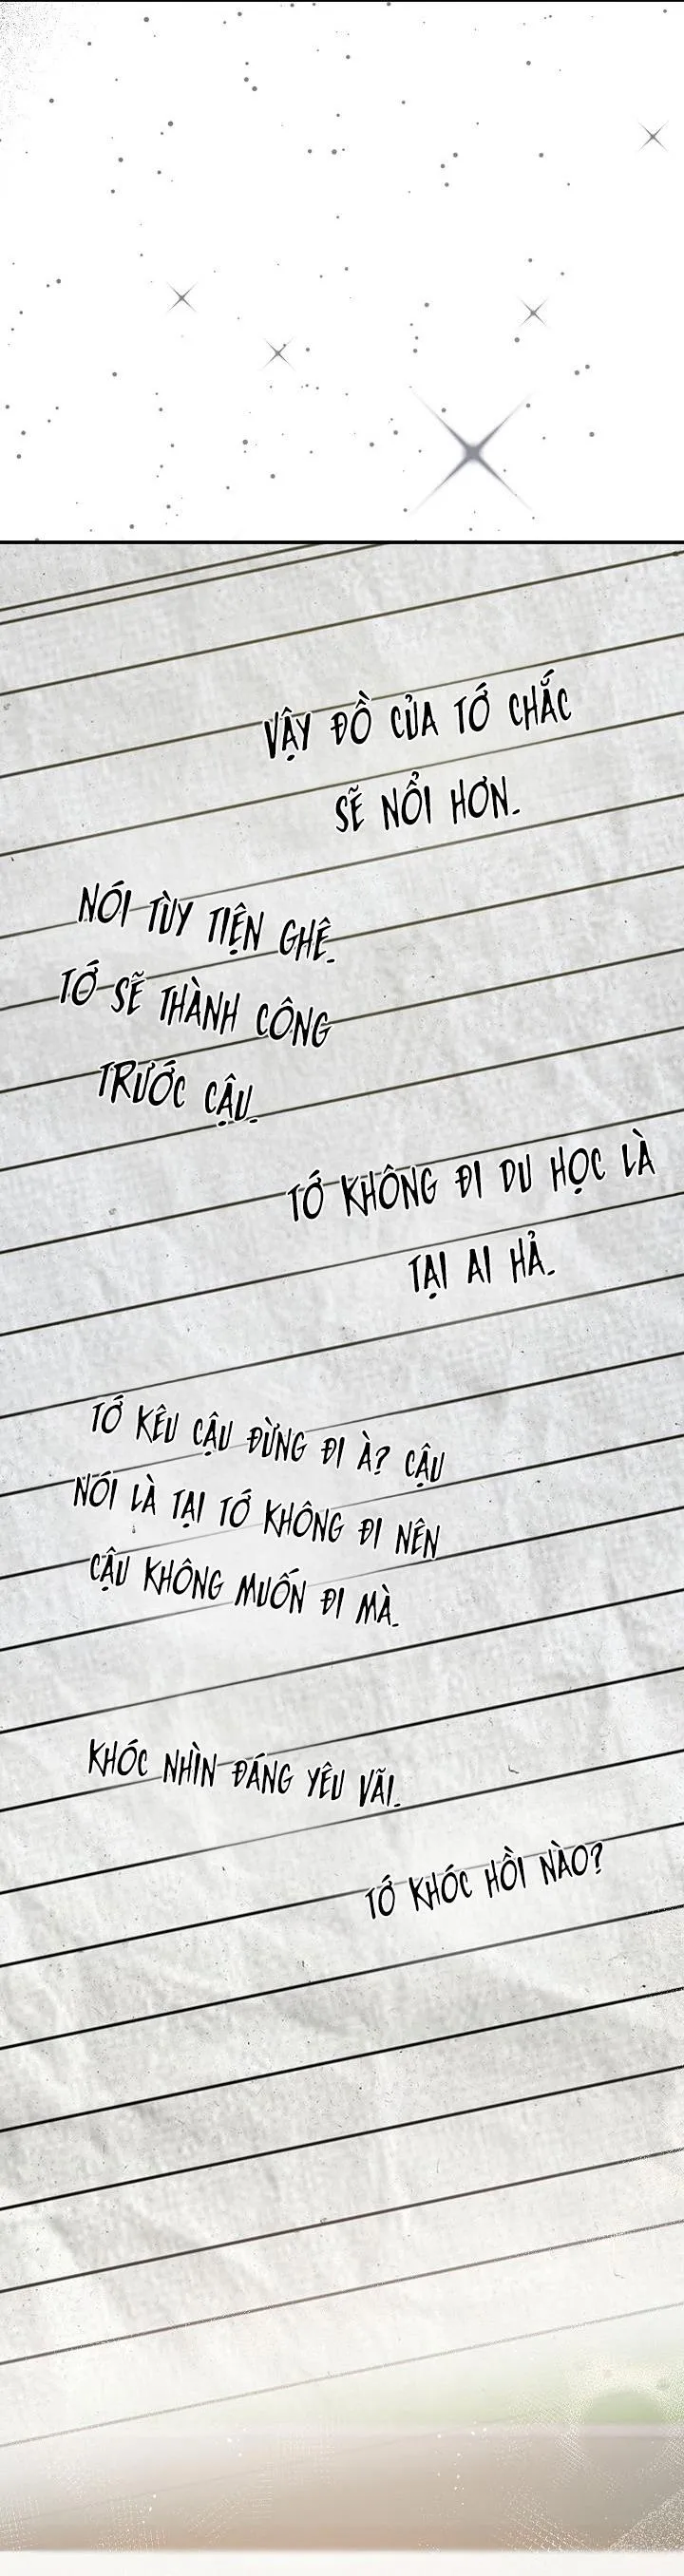 VẬY ĐỒ CỦA TỚ CHẮC
SẼ NỔI HƠN.
NÓI TÙY TIỆN GHÊ.
TỚ SẼ THÀNH CÔNG
TRƯỚC CẬU.
TỚ KHÔNG ĐI DU HỌC LÀ
TẠI AI HẢ.
TỚ KÊU CẬU ĐỪNG ĐI À? CẬU
NÓI LÀ TẠI TỚ KHÔNG ĐI NÊN
CẬU KHÔNG MUỐN ĐI MÀ.
KHÓC NHÌN ĐÁNG YÊU VÃI.
TỚ KHÓC HỒI NÀO?